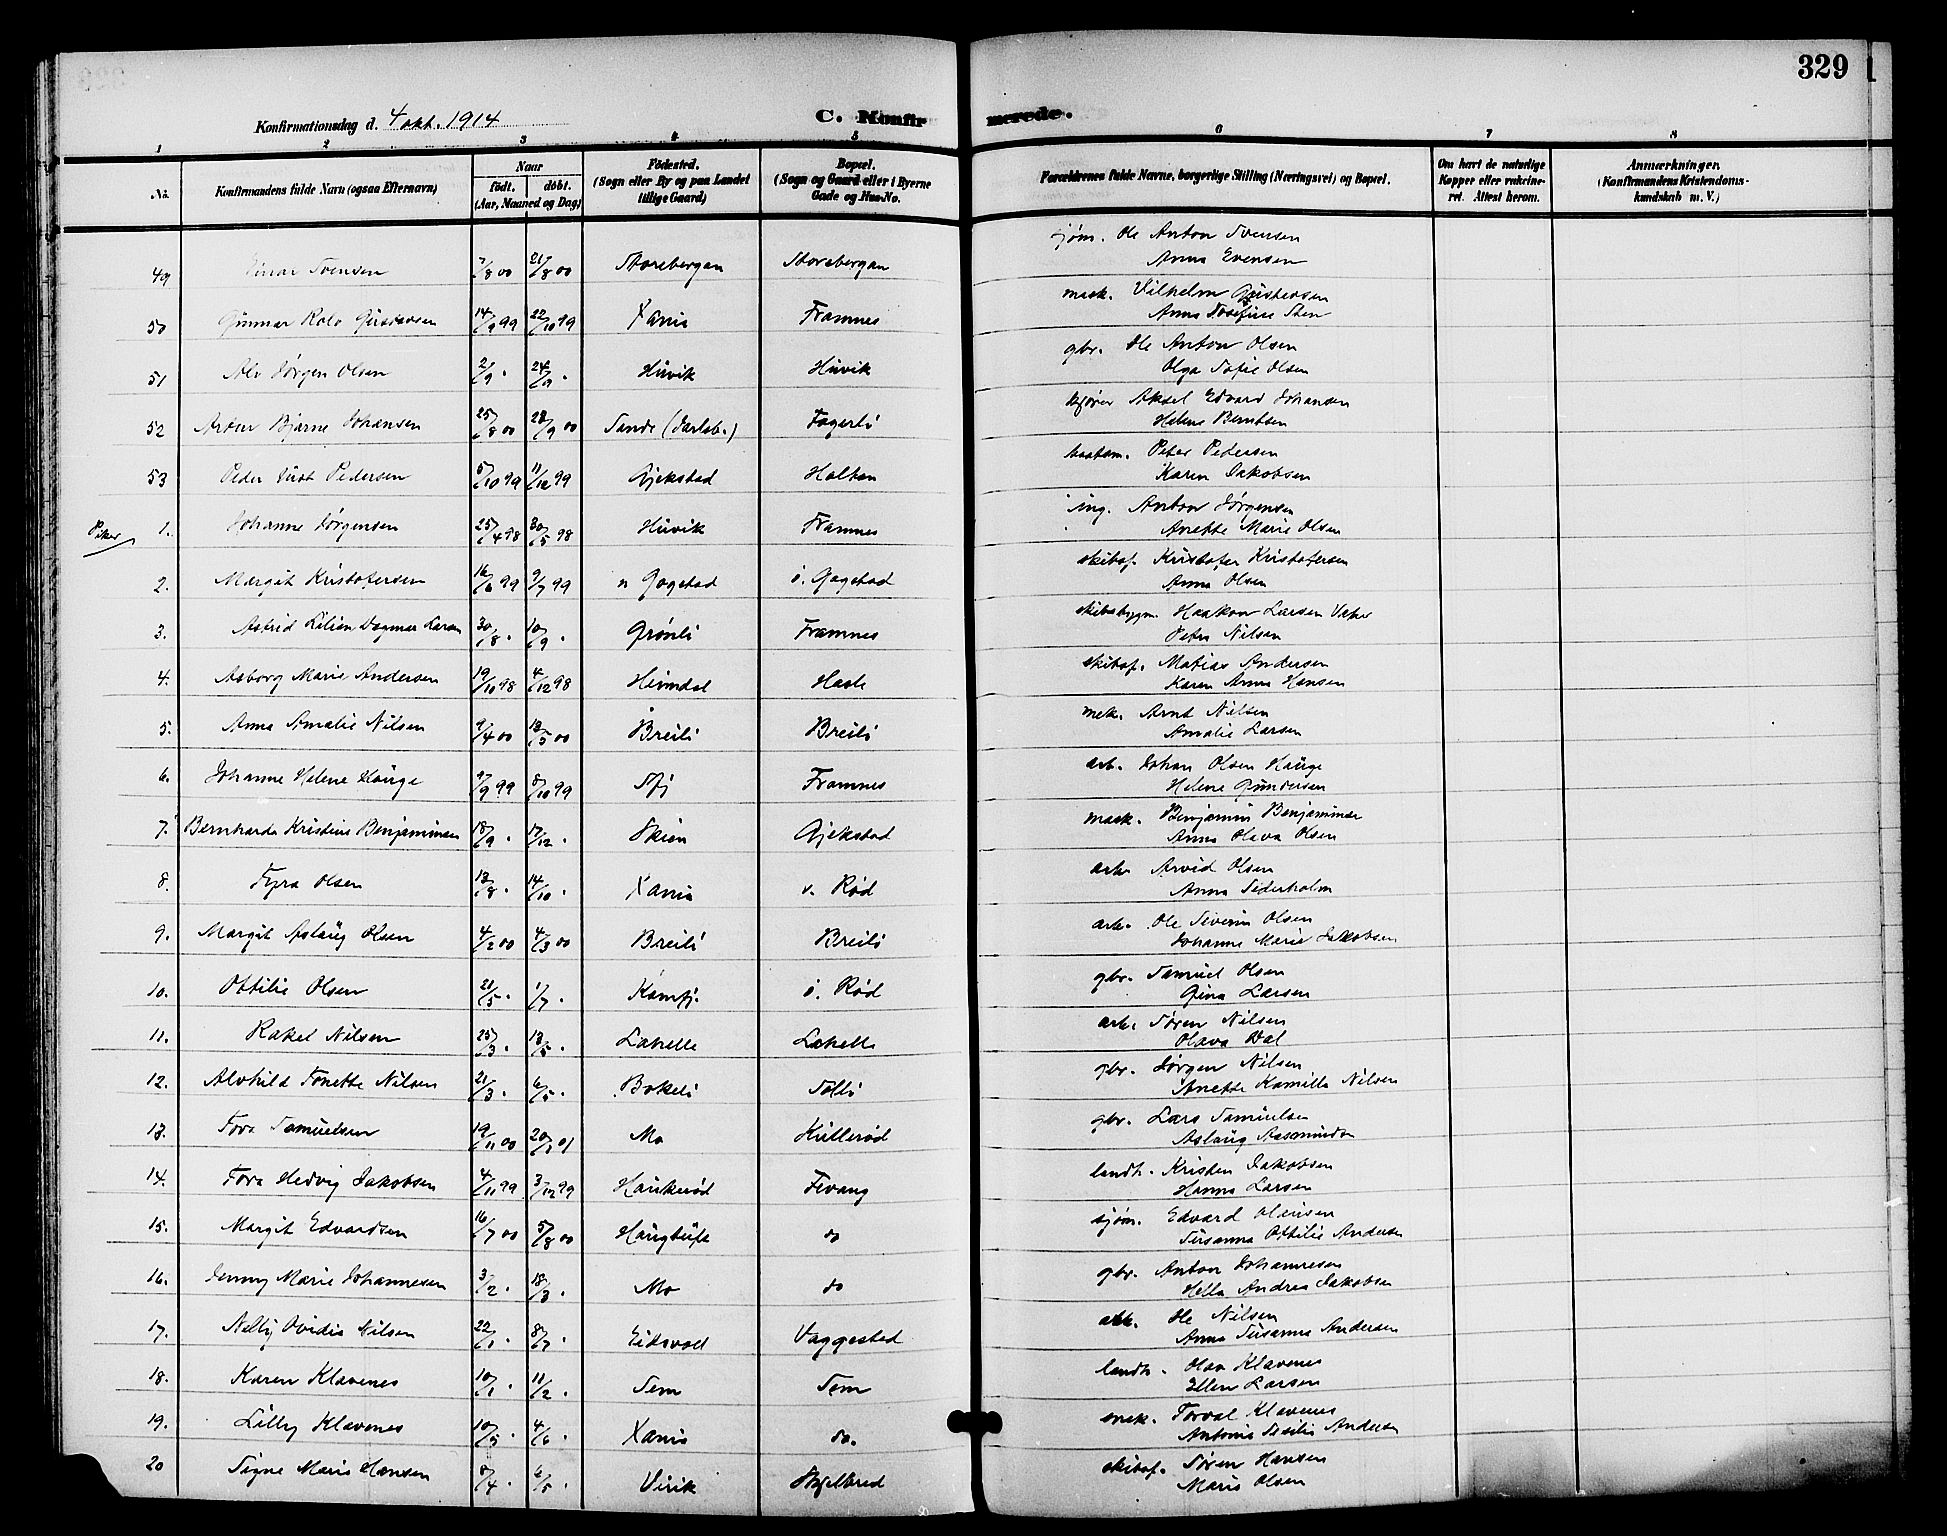 329
Konfirmationsdag d. 4 okt. 1914 C. Konfirmerede.
1 2 3 4 5 6 7 8
No. Konfirmandens fulde Navn (ogsaa Efternavn) Naar födt. döbt. (Aar, Maaned og Dag) Födested. (Sogn eller By og paa Landet tillige Gaard) Bopæl. (Sogn og Gaard eller i Byerne Gade og Hus-No. Forældrenes fulde Navne, borgerlige Stilling (Næringsvei) og Bopæl. Om havt de naturlige Kopper eller vakcineret. Attest herom. Anmærkninger. (Konfirmandens Kristendomskundskab m. V.)
49 Einar Svensen 7/8 00 21/8 00 Storebergan Storebergan sjøm. Ole Anton Svensen
Anna Evensen
50 Gunnar Rolv Gustavsen 14/9 99 22/10 99 Xania Framnes mask. Vilhelm Gustavsen
Anna Josefine Sten
51 Alv Jørgen Olsen 2/9 . 24/9 . Huvik Huvik gbr. Ole Anton Olsen
Olga Sofie Olsen
52 Artur Bjarne Johansen 25/8 00 28/9 00 Sande (Jarlsb.) Fagerli kjører Aksel Edvard Johansen
Helene Berntsen
53 Peder Just Pedersen 5/10 99 11/12 99 Gjekstad Haltan baatsm. Peter Pedersen
Karen Jakobsen
Piker 1. Johanne Jørgensen 25/4 98 30/5 98 Huvik Framnes ing. Anton Jørgensen
Anette Marie Olsen
2. Margit Kristofersen 16/6 99 9/7 99 n Gogstad ö. Gogstad skibsf. Kristofer Kristofersen
Anna Olsen
3. Astrid Lilian Dagmar Larsen 30/8 . 10/9 . Grönli Framnes skibsbygm. Haakon Larsen Vaker
Petra Nilsen
4. Asborg Marie Andersen 19/10 98 4/12 98 Heimdal Hasle skibsf. Matias Andersen
Karen Anna Hansen
5. Anna Amalie Nilsen 9/4 00 13/5 00 Breili Breili mek. Arnt Nilsen
Amalie Larsen
6. Johanne Helene Hauge 9/9 99 8/10 99 Sfj Framnes arb. Johan Olsen Hauge
Helene Gundersen
7. Bernharda Kristine Benjaminsen 18/9 . 17/12 . Skien Gjekstad mask. Benjamin Benjaminsen
Anna Olava Olsen
8. Fyra Olsen 13/8 . 14/10 . Xania v. Rød arb. Arvid Olsen
Anna Sederholm
9. Margit Aslaug Olsen 4/2 00 4/3 00 Breili Breili arb. Ole Severin Olsen
Johanne Marie Jakobsen
10. Ottilie Olsen 21/5 . 1/7 . Kamfj. ö. Rød gbr. Samuel Olsen
Gina Larsen
11. Rakel Nilsen 25/3 . 13/5 . Lahelle Lahelle arb. Søren Nilsen
Olava Dal
12. Alvhild Tonette Nilsen 21/3 . 6/5 . Bøkeli Solli gbr. Jørgen Nilsen
Anette Kamilla Nilsen
13. Tora Samuelsen 19/11 00 20/1 01 Mo Kullerød gbr. Lars Samuelsen
Aslaug Aasmundsn
14. Tora Hedvig Jakobsen 4/11 99 3/12 99 Haukerød Fevang landh. Kristen Jakobsen
Hanna Larsen
15. Margit Edvardsen 16/7 00 5/8 00 Haugtuft do sjøm. Edvard Olausen
Susanna Ottilie Andersen
16. Jenny Marie Johannesen 3/2 . 18/3 . Mo do gbr. Anton Johannesen
Hella Andrea Jakobsen
17. Nelly Ovidia Nilsen 22/1 . 8/7 . Eidsvold Vaggestad arb. Ole Nilsen
Anna Susanna Andersen
18. Karen Klavenes 10/1 . 11/2 . Sem Sem landh. Olav Klavenes
Ellen Larsen
19. Lilly Klavenes 10/3 . 4/6 . Xania do. mek. Torval Klavenes
Antonie Sesilie Andersen
20 Signe Marie Hansen 8/4 . 6/5 . Virik Skjelbred skibsf. Søren Hansen
Marie Olsen